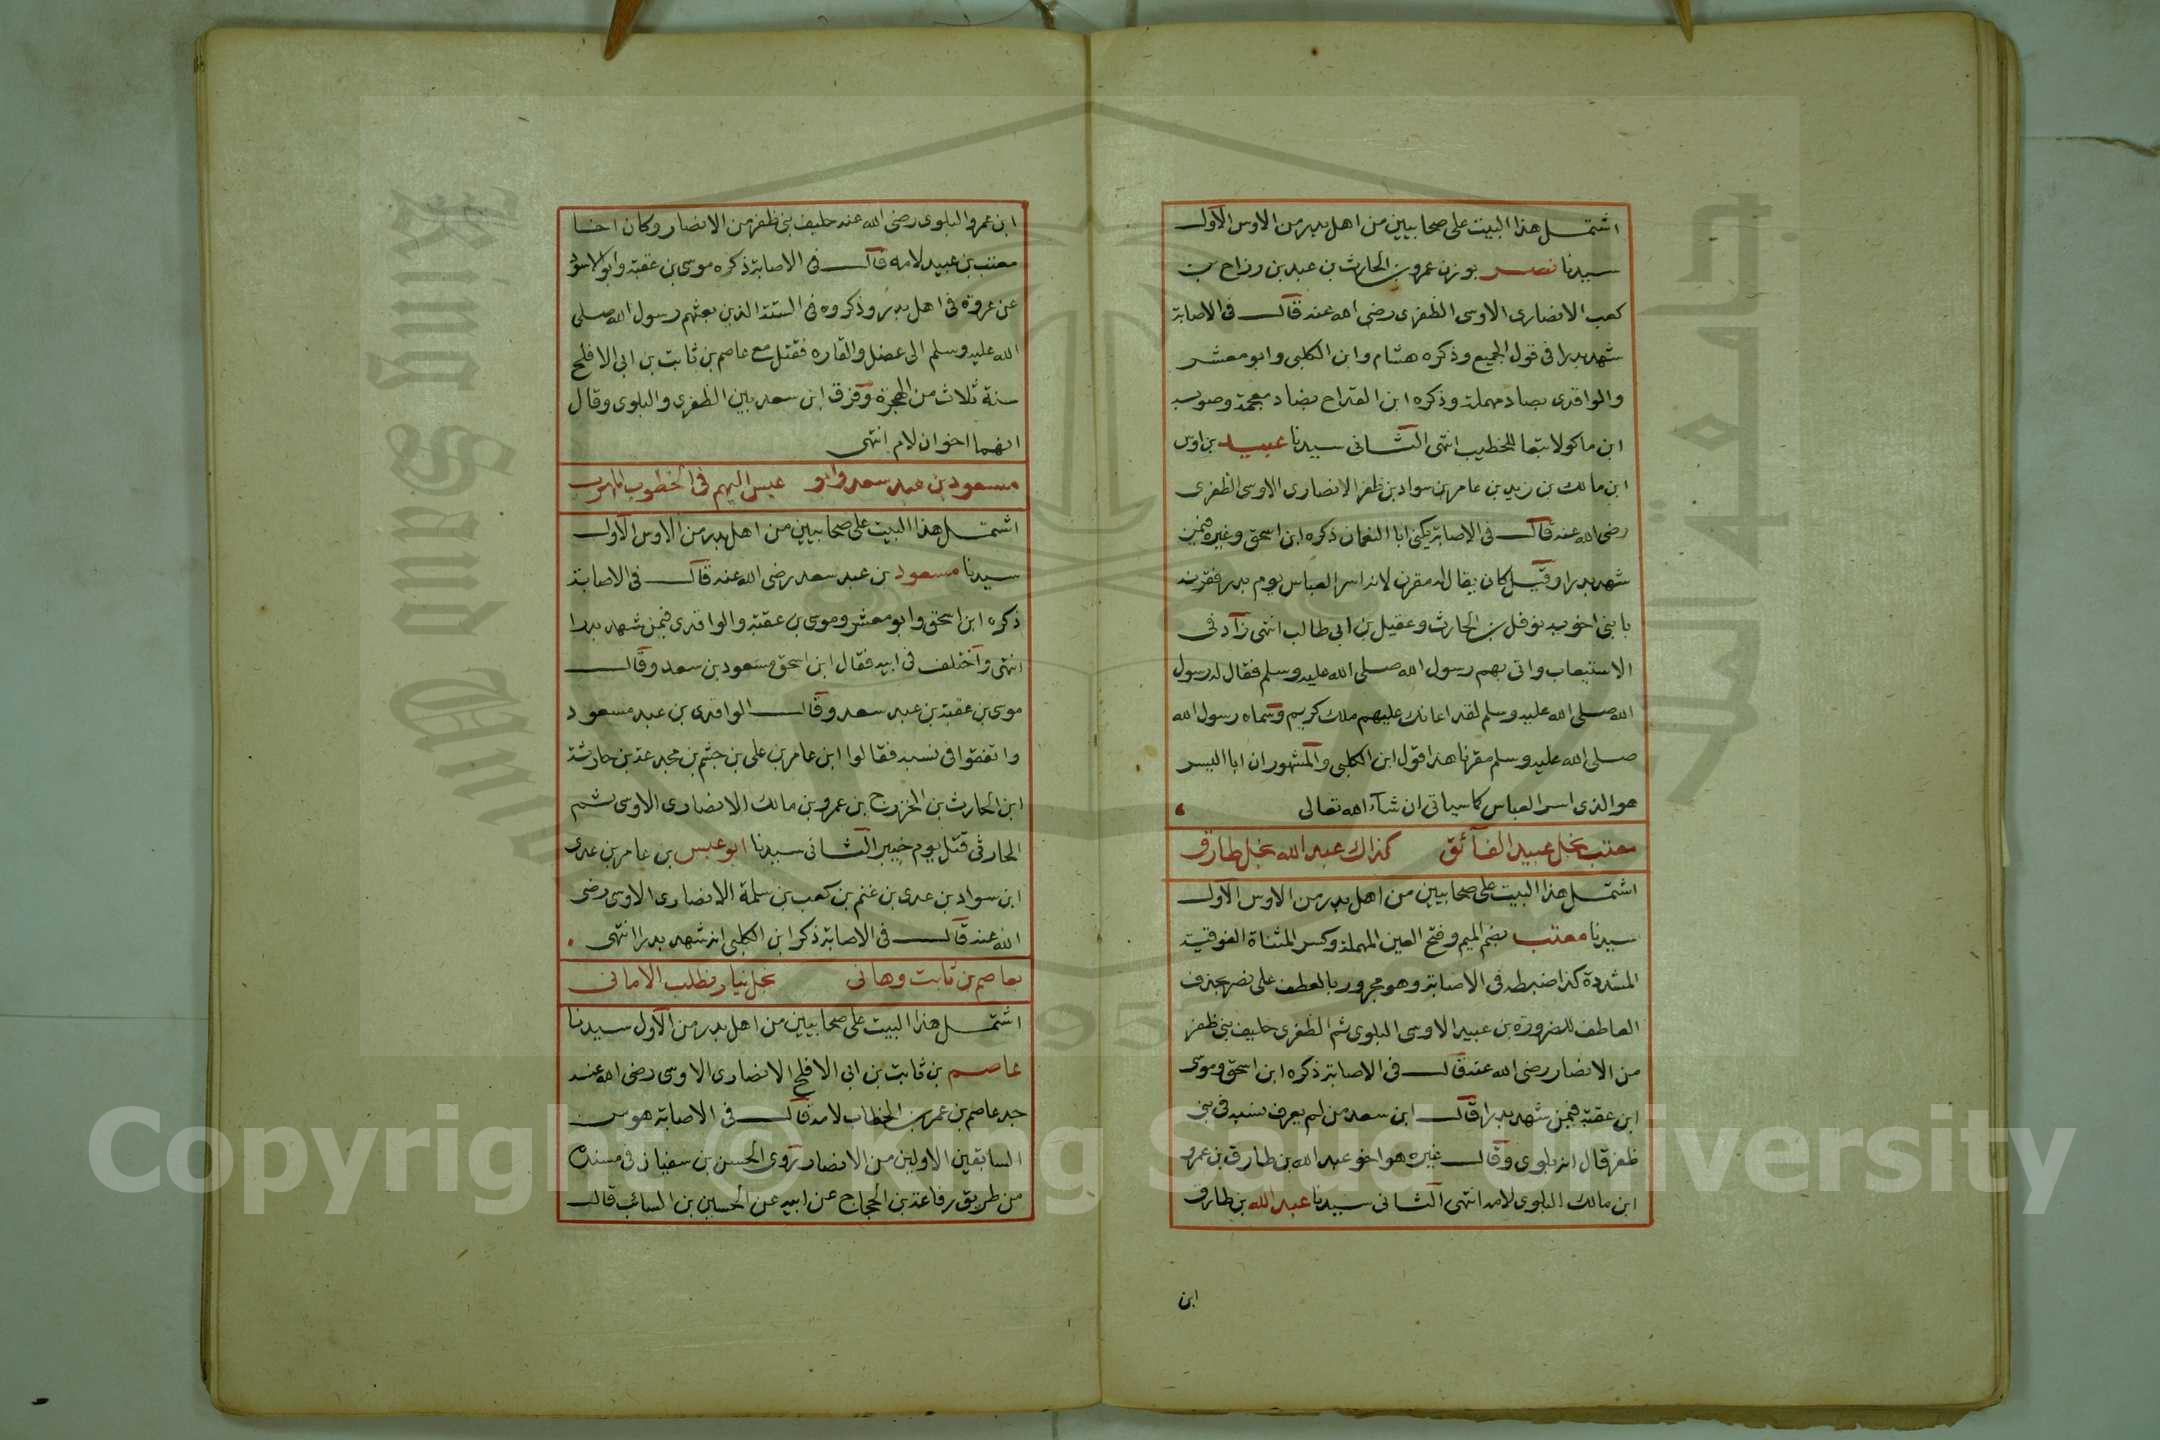 اشتمل هذا البيت على صحابيين من اهل بدر من الاوس الاول
سيدنا نصر بوزن عمرو بن الحارث بن عبد بن رزاح بن
كعب الانصارى الاوسى الظفرى رضى الله عنه قال فى الاصابة
شهد بدرا فى قول الجميع وذكره هشام وابن الكلبى وابو معشر
والواقدى بصاد مهملة وذكره ابن القداح بضاد معجمة وصوب
ابن ماكولا تبعا للخطيب انتهى الثانى سيدنا عبيد بن اوس
ابن مالك بن زيد بن عامر بن سواد بن ظفر الانصارى الاوسى الظفرى
رضى الله عنه قال فى الاصابة يكنى ابا النعمان ذكره ابن اسحق وغيره فيمن
شهد بدرا وقيل كان يقال له مقرن لانه اسر العباس يوم بدر فقرنه
بابنى اخويه نوفل بن الحارث وعقيل بن ابى طالب انتهى زاد فى
الاستيعاب واتى بهم رسول الله صلى الله عليه وسلم فقال له رسول
الله صلى الله عليه وسلم لقد اعانك عليهم ملك كريم وسماه رسول الله
صلى الله عليه وسلم مقرنا هذا قول ابن الكلبى والمشهور ان ابا اليسر
هو الذى اسر العباس كما سياتى ان شاء الله تعالى
معتب نجل عبيد الفائق كذاك عبد الله نجل طارق
اشتمل هذا البيت على صحابيين من اهل بدر من الاوس الاول
سيدنا معتب بضم الميم وفتح العين المهملة وكسر المثناة الفوقية
المشددة كذا ضبطه فى الاصابة وهو مجرور بالعطف على نصر بحذف
العاطف للضرورة بن عبيد الاوسى البلوى ثم الظفرى حليف بنى ظفر
من الانصار رضى الله عنه قال فى الاصابة ذكره ابن اسحق وموسى
ابن عقبة فيمن شهد بدرا قال ابن سعد من لم يعرف نسبه فى بنى
ظفر قال انه بلوى وقال غيره هو اخو عبد الله بن طارق بن عمرو
ابن مالك البلوى لامه انتهى الثانى سيدنا عبد الله بن طارق
ابن
ابن عمرو البلوى رضى الله عنه حليف بنى ظفر من الانصار وكان اخا
معتب بن عبيد لامه قال فى الاصابة ذكره موسى بن عقبة وابو الاسود
عن عروة فى اهل بدر وذكروه فى الستة الذين بعثهم رسول الله صلى
الله عليه وسلم الى عضل والقاره فقتل مع عاصم بن ثابت بن ابى الافلح
سنة ثلاث من الهجرة وفرق ابن سعد بين الظفرى والبلوى وقال
انهما اخوان لام انتهى
مسعود بن عبد سعد وابو عبس اليهم فى الخطوب
اشتمل هذا البيت على صحابيين من اهل بدر من الاوس الاول
سيدنا مسعود بن عبد سعد رضى الله عنه قال فى الاصابة
ذكره ابن اسحق وابو معشر وموسى بن عقبة والواقدى فيمن شهد بدرا
انتهى واختلف فى ابيه فقال ابن اسحق مسعود بن سعد وقال
موسى بن عقبة بن عبد سعد وقال الواقدى بن عبد مسعود
واتفقوا فى نسبه فقالوا ابن عامر بن على بن جشم بن مجدعة بن حارثة
ابن الحارث بن الخزرج بن عمرو بن مالك الانصارى الاوسى ثم
الحارثى قتل يوم خيبر الثانى سيدنا ابو عبس بن عامر بن عدى
ابن سواد بن عدى بن غنم بن كعب بن سلمة الانصارى الاوسى رضى
الله عنه قال فى الاصابة ذكر ابن الكلبى انه شهد بدرا انتهى
بعاصم بن ثابت وهانى نجل نيار نطلب الامانى
اشتمل هذا البيت على صحابيين من اهل بدر من الاول سيدنا
عاصم بن ثابت بن ابى الافلح الانصارى الاوسى رضى الله عنه
جد عاصم بن عمر بن الخطاب لامه قال فى الاصابة هو من
السابقين الاولين من الانصار روى الحسن بن سفيان فى مسنده
من طريق رفاعة بن الحجاج عن ابيه عن الحسين بن السائب قال
Copyright © King Saud University